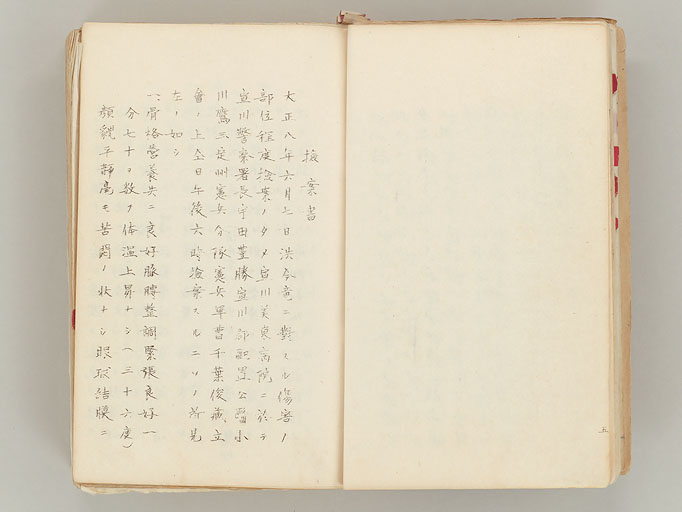 檢案書
大正八年六月七日洪今竜ニ對スル傷害ノ
部位程度檢案ノタメ宣川美東病院ニ於テ
宣川警察署長宇田豊勝宣川郡 公醫小
川鷹三定州憲兵分隊憲兵軍曹千葉俊藏立
會ノ上仝日午後六時檢案スルニソノ所見
左ノ如シ
一、骨格營養共ニ良好脉膊整調緊張良好一
分七十ヲ数ヲ体温上昇ナシ(三十六度)
顏貌平静毫モ苦悶ノ状ナシ眼球結膜ニ
五